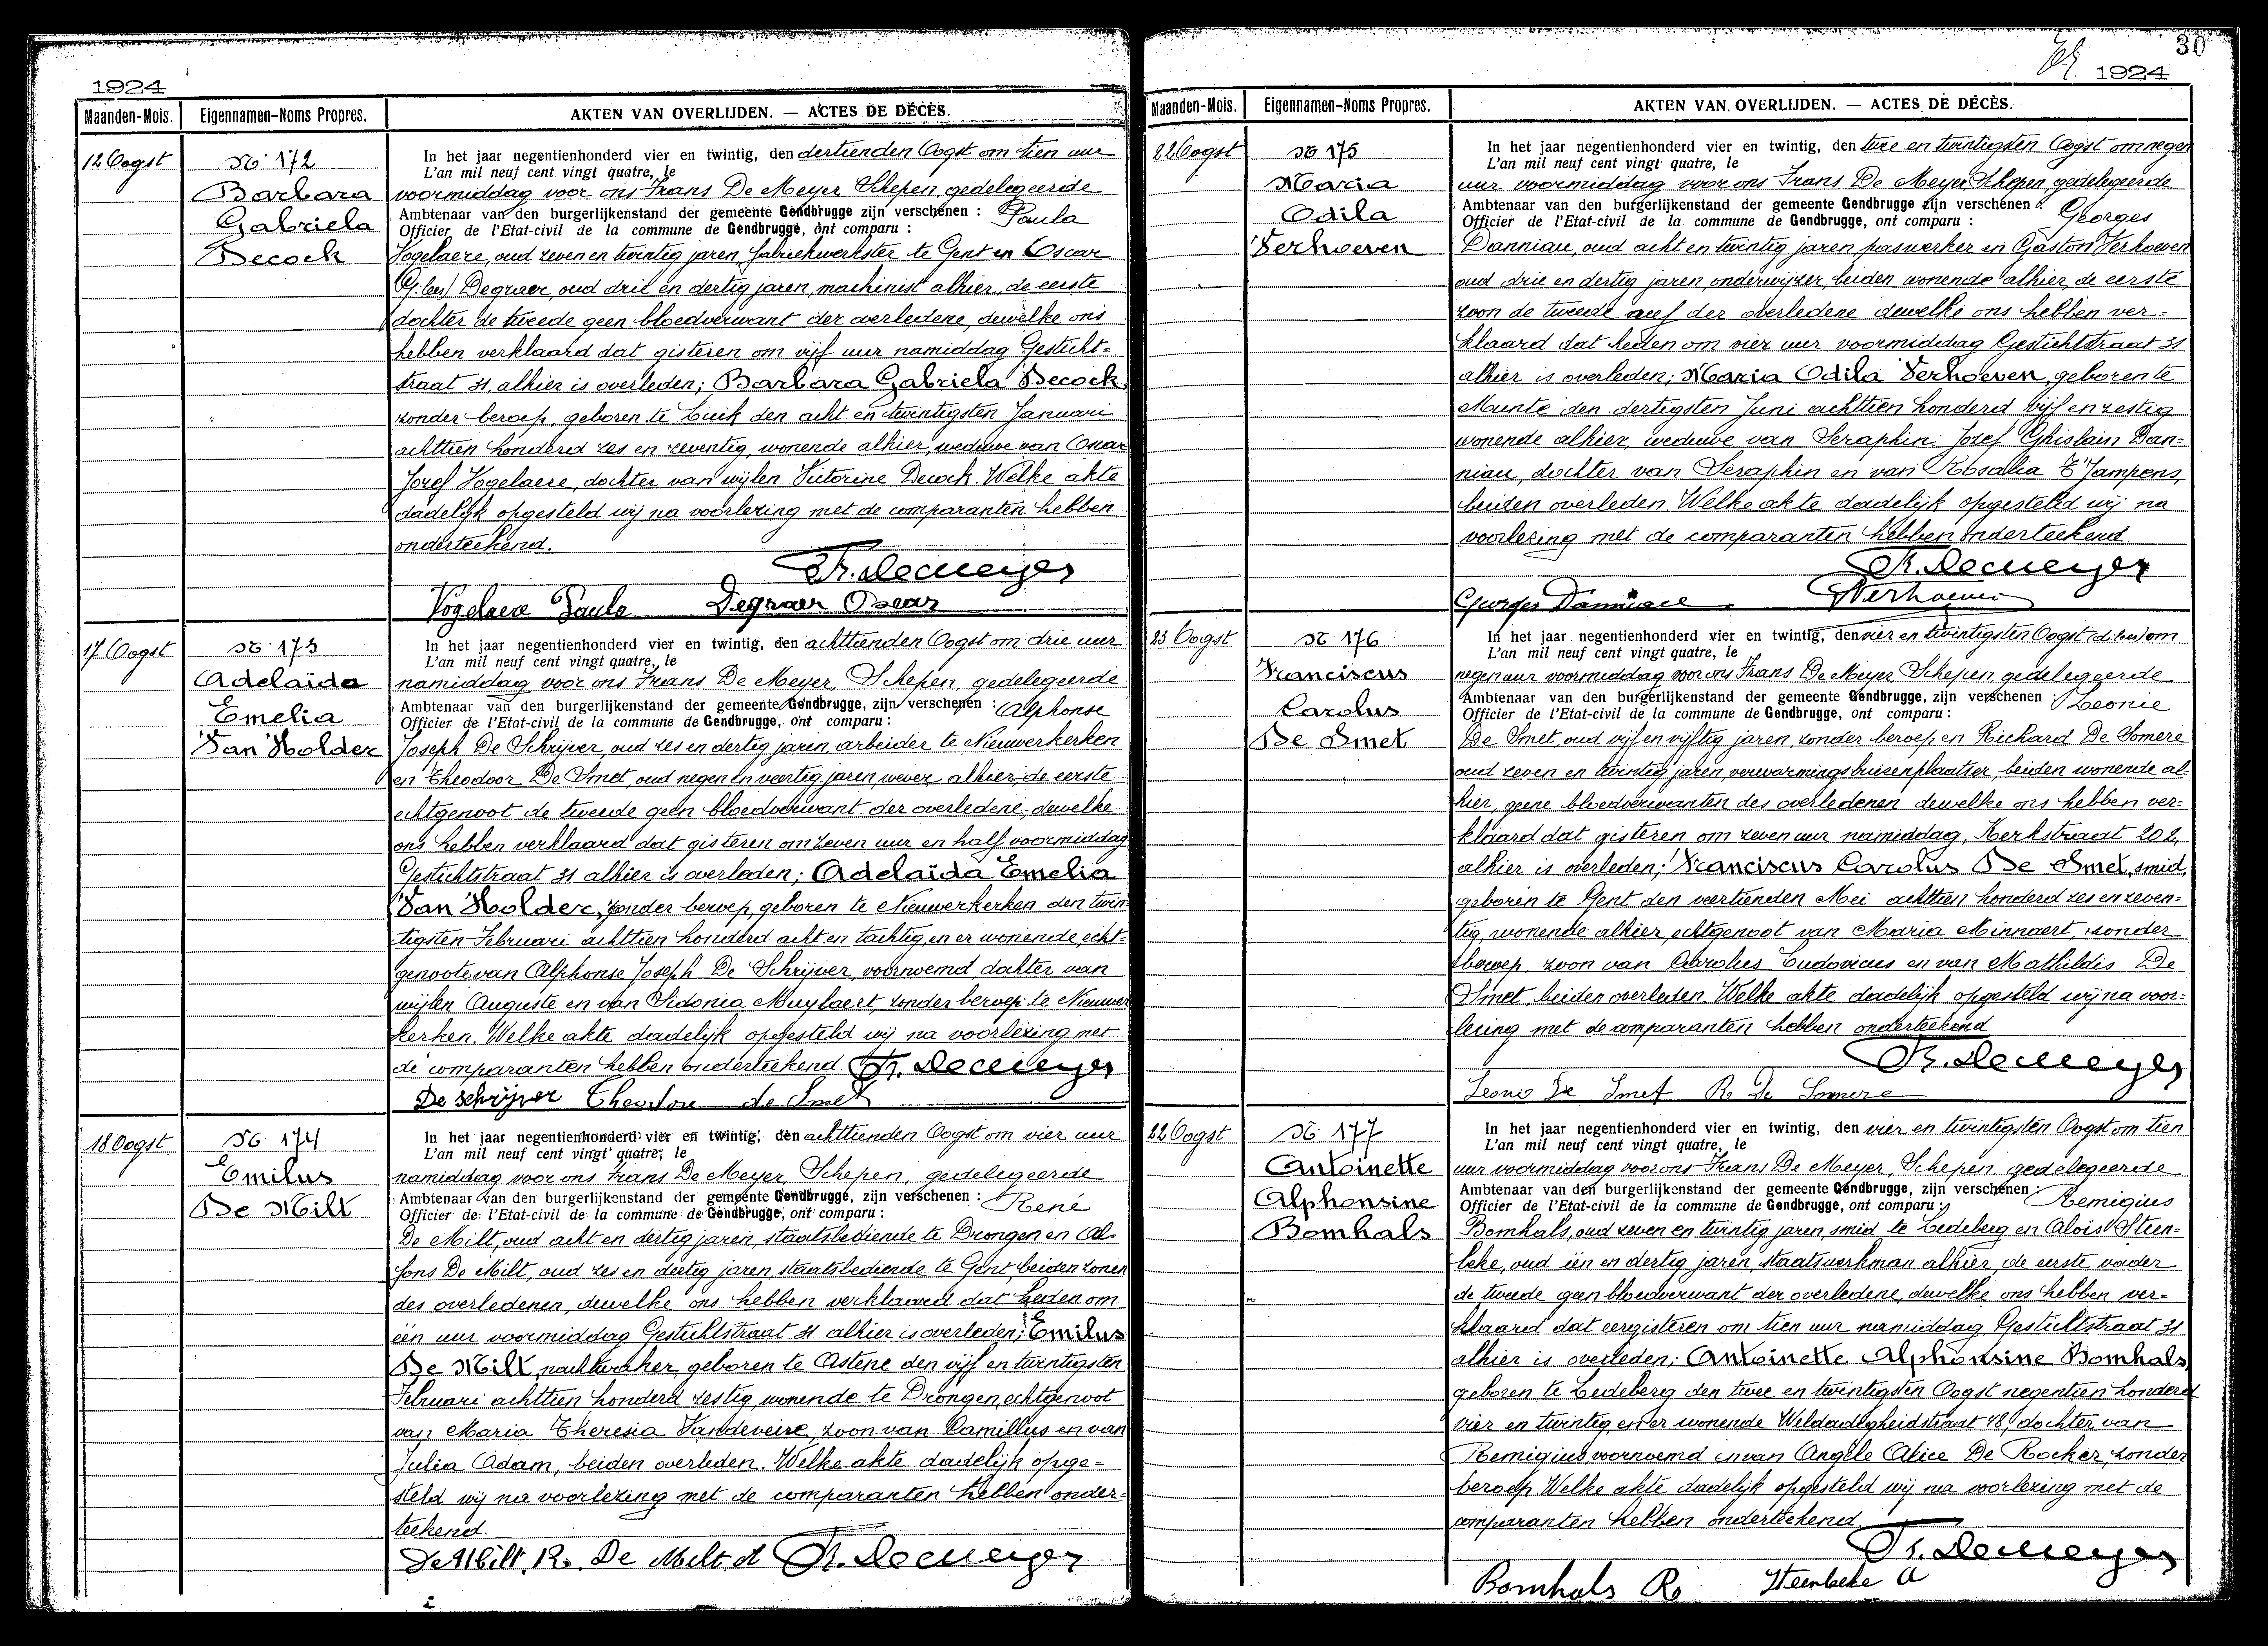 1924
Maanden-Mois. Eigennamen-Noms Propres. AKTEN VAN OVERLIJDEN. — ACTES DE DÉCÈS.
12 Oogst
No 172
Barbara
Gabriela
Decock
In het jaar negentienhonderd vier en twintig, den dertienden Oogst om tien uur
L'an mil neuf cent vingt quatre, le
voormiddag voor ons Frans De Meyer Schepen gedelegeerde
Ambtenaar van den burgerlijkenstand der gemeente Gendbrugge zijn verschenen : Paula
Officier de l'Etat-civil de la commune de Gendbrugge, ont comparu :
Vogelaere, oud zeven en twintig jaren fabriekwerkster te Gent en Oscar
Degraer, oud drie en dertig jaren, machinist alhier, de eerste
dochter de tweede geen bloedverwant der overledene, dewelke ons
hebben verklaard dat gisteren om vijf uur namiddag Gesticht-
straat 31, alhier is overleden; Barbara Gabriela Decock,
zonder beroep, geboren te Luik den acht en twintigsten Januari
achttien honderd zes en zeventig, wonende alhier, weduwe van Oscar
Jozef Vogelaere, dochter van wijlen Victorine Decock. Welke akte
dadelijk opgesteld wij na voorlezing met de comparanten hebben
onderteekend.
Fr. Demeyer
Vogelaere Paula Degraer Oscar
17 Oogst
No 173
Adelaïda
Emelia
Van Holder
In het jaar negentienhonderd vier en twintig, den achttienden Oogst om drie uur
L'an mil neuf cent vingt quatre, le
namiddag voor ons Frans De Meyer, Schepen, gedelegeerde
Ambtenaar van den burgerlijkenstand der gemeente Gendbrugge, zijn verschenen : Alphonse
Officier de l'Etat-civil de la commune de Gendbrugge, ont comparu :
Joseph De Schrijver, oud zes en dertig jaren, arbeider te Nieuwerkerken
en Theodoor De Smet, oud negen en veertig jaren, wever alhier, de eerste
echtgenoot de tweede geen bloedverwant der overledene, dewelke
ons hebben verklaard dat gisteren om zeven uur en half voormiddag
Gestichtstraat 31 alhier is overleden; Adelaïda Emelia
Van Holder, zonder beroep, geboren te Nieuwerkerken den twin
tigsten Februari achttien honderd acht en tachtig, en er wonende, echt-
genoote van Alphonse Joseph De Schrijver, voornoemd dochter van
wijlen Auguste en van Sidonia Muylaert, zonder beroep te Nieuwer
kerken. Welke akte dadelijk opgesteld wij na voorlezing met
de comparanten hebben onderteekend. Fr. Demeyer
De schrijver Theodoor de Smet
18 Oogst
No 174
Emilus
De Milt
In het jaar negentienhonderd vier en twintig, den achttienden Oogst om vier uur
L'an mil neuf cent vingt quatre, le
namiddag voor ons Frans De Meyer, Schepen, gedelegeerde
Ambtenaar van den burgerlijkenstand der gemeente Gendbrugge, zijn verschenen : René
Officier de l'Etat-civil de la commune de Gendbrugge, ont comparu :
De Milt, oud acht en dertig jaren, staatsbediende te Drongen en Al-
fons De Milt, oud zes en dertig jaren, staatsbediende te Gent, beiden zonen
des overledenen, dewelke ons hebben verklaard dat heden om
één uur voormiddag Gestichtstraat 31 alhier is overleden; Emilus
De Milt, nachtwaker, geboren te Astene den vijf en twintigsten
Februari achttien honderd zestig, wonende te Drongen, echtgenoot
van Maria Theresia Vandeveire, zoon van Camillus en van
Julia Adam, beiden overleden. Welke akte dadelijk opge-
steld wij na voorlezing met de comparanten hebben onder-
teekend.
De Milt R. De Milt A Fr. Demeyer
30
1924
Maanden-Mois. Eigennamen-Noms Propres. AKTEN VAN OVERLIJDEN. — ACTES DE DÉCÈS.
22 Oogst
No 175
Maria
Odila
Verhoeven
In het jaar negentienhonderd vier en twintig, den twee en twintigsten Oogst om negen
L'an mil neuf cent vingt quatre, le
uur voormiddag voor ons Frans De Meyer Schepen, gedelegeerde
Ambtenaar van den burgerlijkenstand der gemeente Gendbrugge zijn verschenen : Georges
Officier de l'Etat-civil de la commune de Gendbrugge, ont comparu :
Danniau, oud acht en twintig jaren, paswerker en Gaston Verhoeven
oud drie en dertig jaren onderwijzer, beiden wonende alhier, de eerste
zoon de tweede neef der overledene dewelke ons hebben ver-
klaard dat heden om vier uur voormiddag Gestichtstraat 31
alhier is overleden; Maria Odila Verhoeven, geboren te
Munte den dertigsten Juni achttien honderd vijf en zestig
wonende alhier, weduwe van Seraphin Jozef Ghislain Dan-
niau, dochter van Seraphin en van Rosalia T'Jampens,
beiden overleden. Welke akte dadelijk opgesteld wij na
voorlezing met de comparanten hebben onderteekend.
Fr. Demeyer
Georges Danniau GVerhoeven
23 Oogst
No 176
Franciscus
Carolus
De Smet
In het jaar negentienhonderd vier en twintig, den vier en twintigsten Oogst om
L'an mil neuf cent vingt quatre, le
negen uur voormiddag voor ons Frans De Meyer Schepen, gedelegeerde
Ambtenaar van den burgerlijkenstand der gemeente Gendbrugge, zijn verschenen : Leonie
Officier de l'Etat-civil de la commune de Gendbrugge, ont comparu :
De Smet, oud vijf en vijftig jaren, zonder beroep en Richard De Somere
oud zeven en twintig jaren, verwarmingsbuizenplaatser, beiden wonende al-
hier, geene bloedverwanten des overledenen dewelke ons hebben ver-
klaard dat gisteren om zeven uur namiddag, Kerkstraat 202,
alhier is overleden; Franciscus Carolus De Smet, smid,
geboren te Gent den veertienden Mei achttien honderd zes en zeven-
tig, wonende alhier, echtgenoot van Maria Minnaert, zonder
beroep, zoon van Carolus Ludovicus en van Mathildis De
Smet, beiden overleden. Welke akte dadelijk opgesteld wij na voor-
lezing met de comparanten hebben onderteekend
Fr. Demeyer
Leonie De Smet R. De Somere
22 Oogst
No 177
Antoinette
Alphonsine
Bomhals
In het jaar negentienhonderd vier en twintig, den vier en twintigsten Oogst om tien
L'an mil neuf cent vingt quatre, le
uur voormiddag voor ons Frans De Meyer, Schepen, gedelegeerde
Ambtenaar van den burgerlijkenstand der gemeente Gendbrugge, zijn verschenen : Remigius
Officier de l'Etat-civil de la commune de Gendbrugge, ont comparu :
Bomhals, oud zeven en twintig jaren, smid te Ledeberg en Aloïs Steen-
beke, oud één en dertig jaren, staatswerkman alhier, de eerste vader
de tweede geen bloedverwant der overledene, dewelke ons hebben ver-
klaard dat eergisteren om tien uur namiddag Gestichtstraat 31
alhier is overleden; Antoinette Alphonsine Bomhals,
geboren te Ledeberg den twee en twintigsten Oogst negentien honderd
vier en twintig, en er wonende Weldadigheidstraat 48, dochter van
Remigius, voornoemd en van Angèle Alice De Rocker, zonder
beroep. Welke akte dadelijk opgesteld wij na voorlezing met de
comparanten hebben onderteekend.
Fr. Demeyer
Bomhals R. Steenbeke A